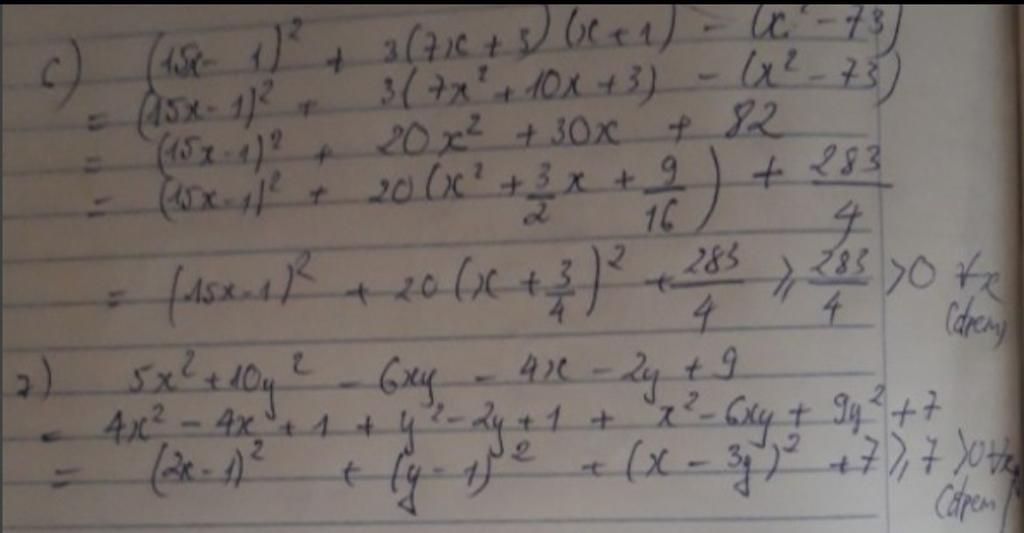 c) (15x - 1)² + 3(7x + 3)(x + 1) - (x² - 73)
= (15x - 1)² + 3(7x² + 10x + 3) - (x² - 73)
= (15x - 1)² + 20x² + 30x + 82
= (15x - 1)² + 20(x² + 3/2 x + 9/16) + 283/4
= (15x - 1)² + 20(x + 3/4)² + 283/4 ⩾ 283/4 > 0 ∀x
(đpcm)
7) 5x² + 10y² - 6xy - 4x - 2y + 9
= 4x² - 4x + 1 + y² - 2y + 1 + x² - 6xy + 9y² + 7
= (2x - 1)² + (y - 1)² + (x - 3y)² + 7 ⩾ 7 > 0 ∀x,y
(đpcm)